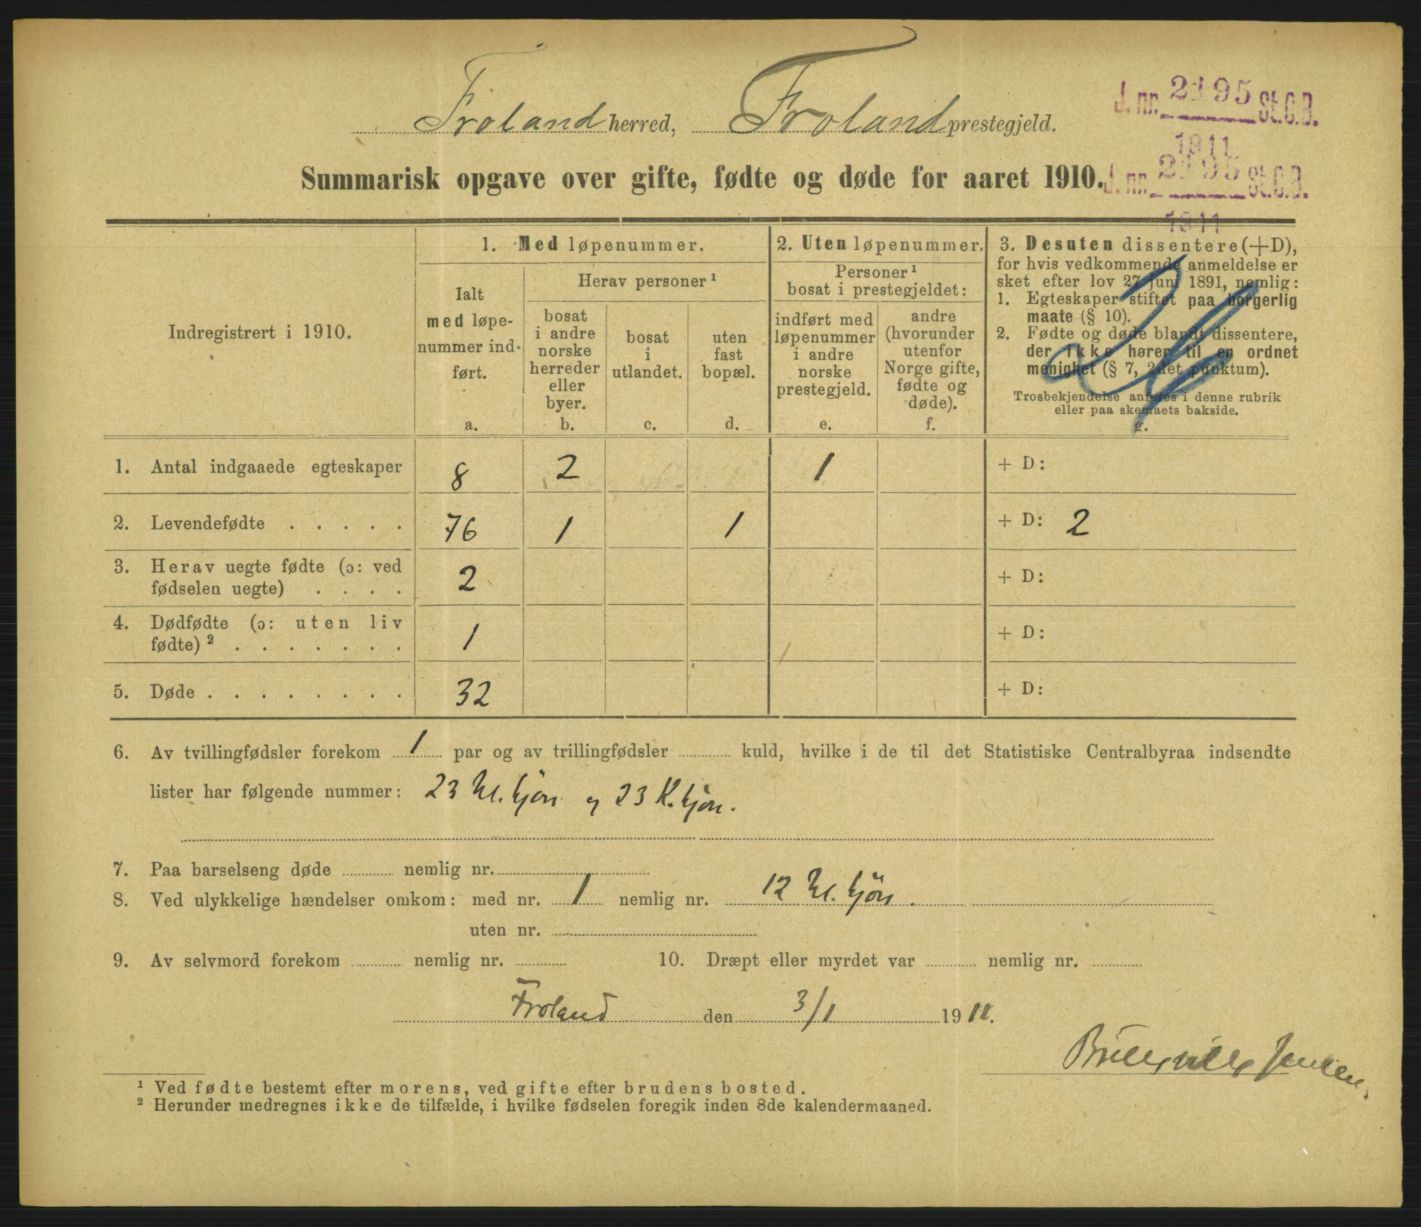 Froland herred, Froland prestegjeld.
J. nr. 2195 St.C.B.
1911
J. nr. 2195 St.C.B.
1911
Summarisk opgave over gifte, fødte og døde for aaret 1910.
Indregistrert i 1910.
1. Med løpenummer.
Ialt
med løpe-
nummer ind-
ført.
a.
Herav personer ¹
bosat
i andre
norske
herreder
eller
byer.
b.
bosat
i
utlandet.
c.
uten
fast
bopæl.
d.
2. Uten løpenummer.
Personer ¹
bosat i prestegjeldet:
indført med
løpenummer
i andre
norske
prestegjeld.
e.
andre
(hvorunder
utenfor
Norge gifte,
fødte og
døde).
f.
3. Desuten dissentere (+D),
for hvis vedkommende anmeldelse er
sket efter lov 27 juni 1891, nemlig:
1. Egteskaper stiftet paa borgerlig
maate (§ 10).
2. Fødte og døde blandt dissentere,
der ikke hører til en ordnet
menighet (§ 7, 2det punktum).
Trosbekjendelse anføres i denne rubrik
eller paa skemaets bakside.
g.
1. Antal indgaaede egteskaper 8 2 1 + D:
2. Levendefødte . . . . . 76 1 1 + D: 2
3. Herav uegte fødte (ɔ: ved
fødselen uegte) . . . . 2 + D:
4. Dødfødte (ɔ: uten liv
fødte) ² . . . . . . . 1 + D:
5. Døde . . . . . . . . 32 + D:
6. Av tvillingfødsler forekom 1 par og av trillingfødsler kuld, hvilke i de til det Statistiske Centralbyraa indsendte
lister har følgende nummer: 23 M. kjøn og 23 K. kjøn.
7. Paa barselseng døde nemlig nr.
8. Ved ulykkelige hændelser omkom: med nr. 1 nemlig nr. 12 M. kjøn.
uten nr.
9. Av selvmord forekom nemlig nr. 10. Dræpt eller myrdet var nemlig nr.
Froland den 3/1 1911.
Jensen
¹ Ved fødte bestemt efter morens, ved gifte efter brudens bosted.
² Herunder medregnes ikke de tilfælde, i hvilke fødselen foregik inden 8de kalendermaaned.